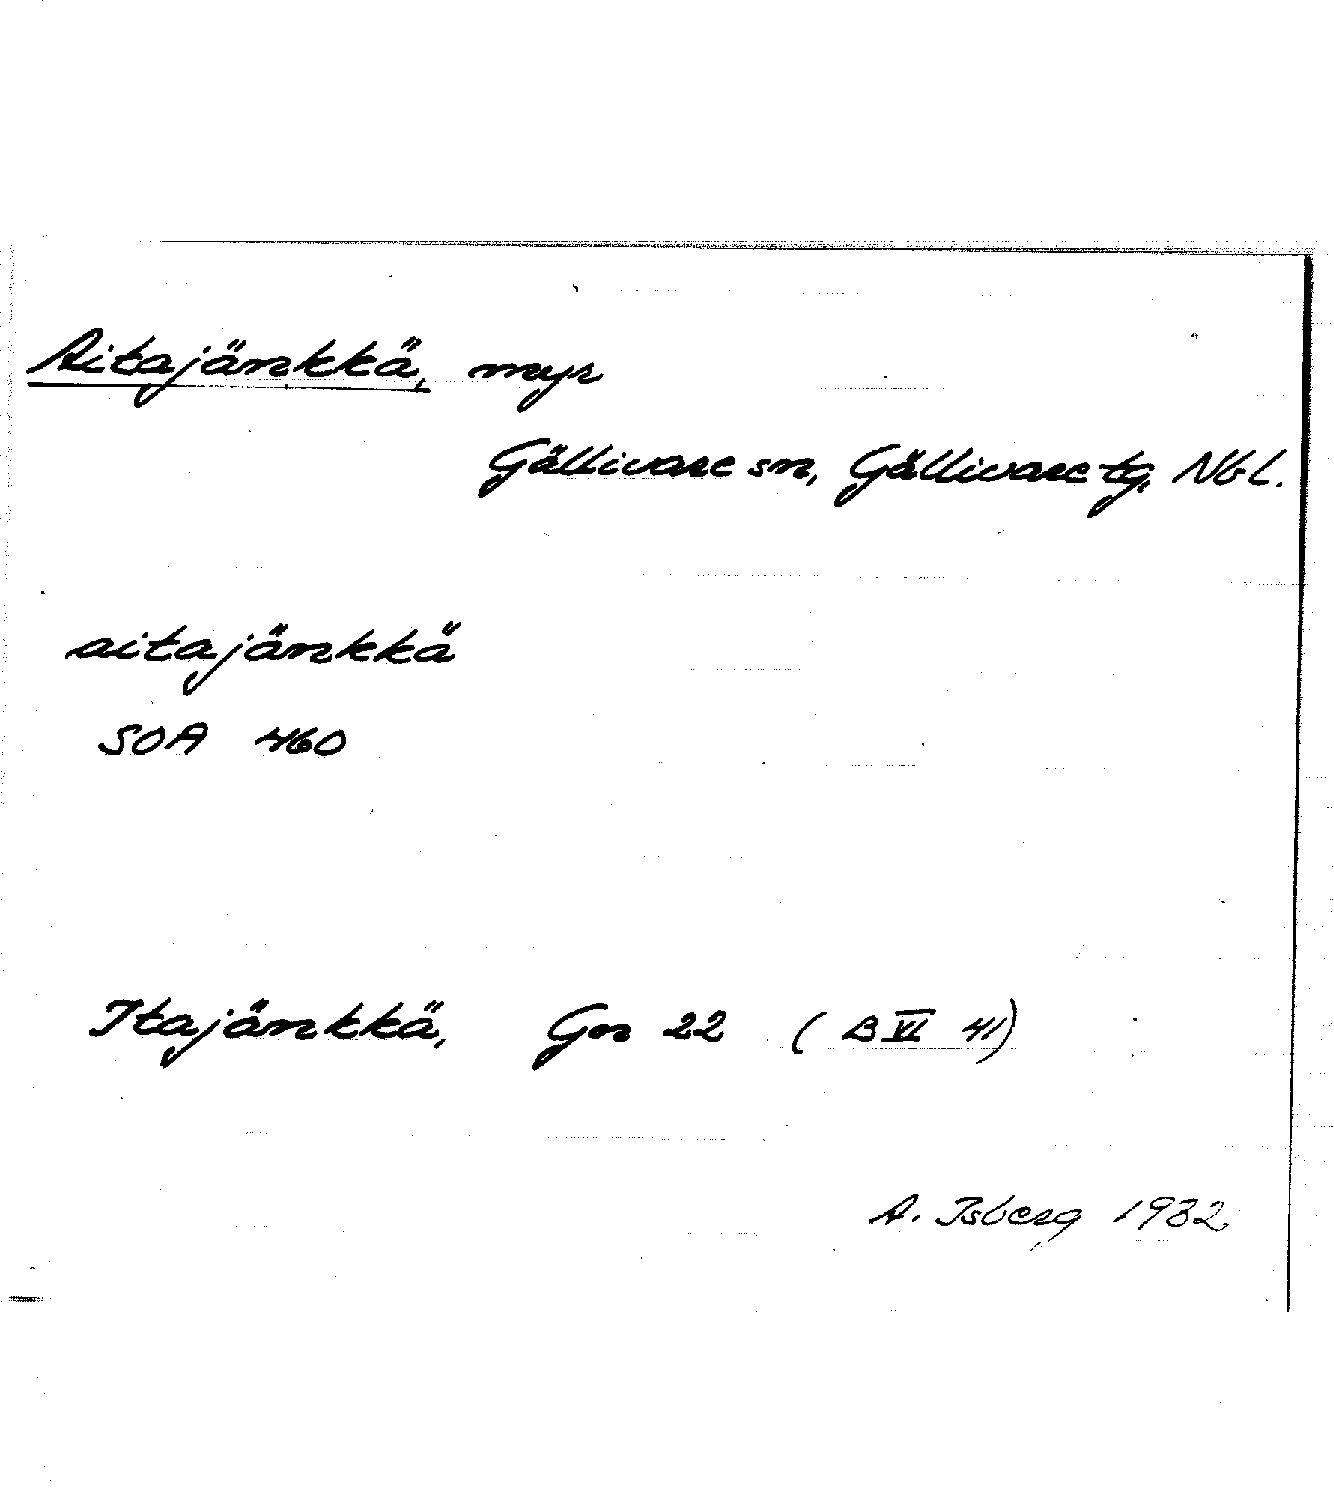 Aitajänkkä, myr
Gällivare sn, Gällivare tg, NbL.
aitajänkkä
SOA 460
Itajänkkä, Gn 22 (B VI 41)
A. Isberg 1932